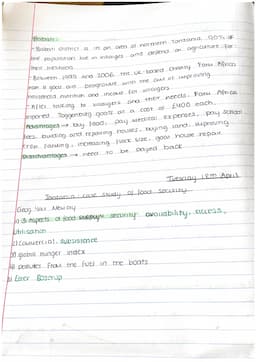 Babati:
- Babati district is in an area of northern Tanzania. 90% of
the population live in villages and depend on agriculture for
their livelihood.
- Between 1999 and 2006 the UK based charity Farm Africa
ran a goat aid programme with the aim of improving
household nutrition and income for villagers
- After talking to villagers and their needs, Farm Africa
imported Toggenburg goats at a cost of £400 each.
Advantages → buy food, pay medical expenses, pay school
fees, building and repairing houses, buying land, improving
farming, increasing flock size, good house repair
Disadvantages → need to be payed back
Tuesday 18th April
Tanzania: case study of food security
Geog Year New day
1) 3 aspects of food supply security: availability, access,
utilisation
2) commercial, subsistence
3) global hunger index
4) pollutes from the fuel in the boats
5) Ester Boserup